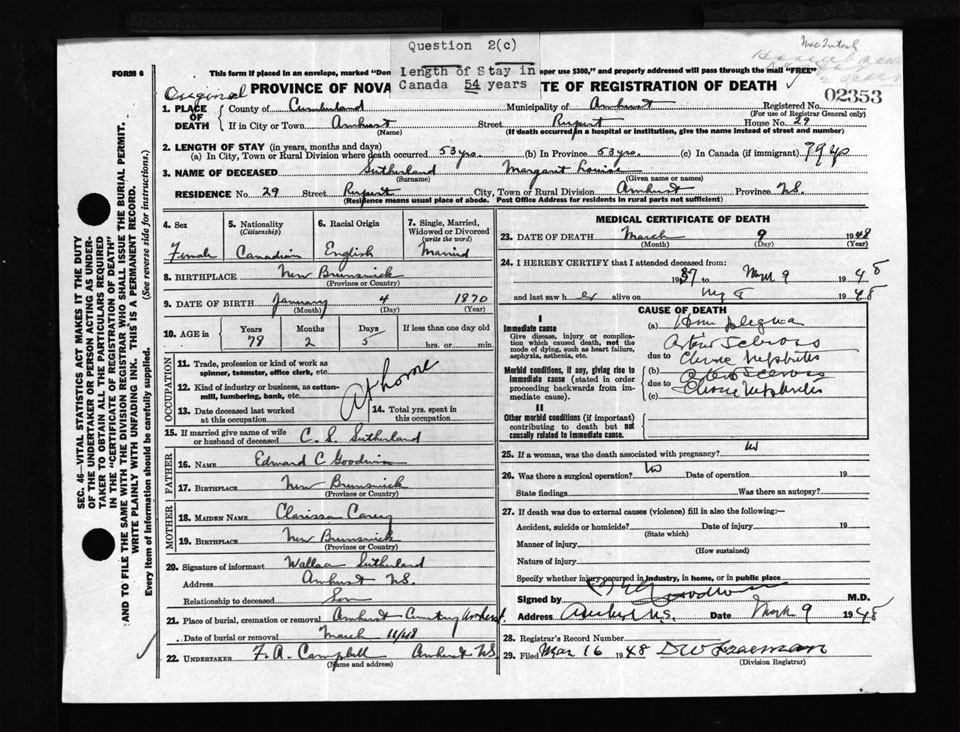 Question 2(c)
Length of Stay in
Canada 54 years
MacIntosh
FORM 6
This form if placed in an envelope, marked "Don
oper use $300," and properly addressed will pass through the mail "FREE"
Original
PROVINCE OF NOVA
TE OF REGISTRATION OF DEATH
02353
1. PLACE OF DEATH
County of Cumberland Municipality of Amherst Registered No.
(For use of Registrar General only)
If in City or Town Amherst Street Rupert House No. 29
(Name) (If death occurred in a hospital or institution, give the name instead of street and number)
2. LENGTH OF STAY (in years, months and days)
(a) In City, Town or Rural Division where death occurred 53 yrs. (b) In Province 53 yrs. (c) In Canada (if immigrant)
3. NAME OF DECEASED Sutherland Margaret Louise
(Surname) (Given name or names)
RESIDENCE No. 29 Street Rupert City, Town or Rural Division Amherst Province N.S.
(Residence means usual place of abode. Post Office Address for residents in rural parts not sufficient)
4. Sex
Female
5. Nationality
(Citizenship)
Canadian
6. Racial Origin
English
7. Single, Married, Widowed or Divorced
(write the word)
Married
8. BIRTHPLACE New Brunswick
(Province or Country)
9. DATE OF BIRTH January 4 1870
(Month) (Day) (Year)
10. AGE in
Years Months Days If less than one day old
78 2 5 hrs. or min.
OCCUPATION
11. Trade, profession or kind of work as spinner, teamster, office clerk, etc.
12. Kind of industry or business, as cotton-mill, lumbering, bank, etc.
At home
13. Date deceased last worked at this occupation
14. Total yrs. spent in this occupation
15. If married give name of wife or husband of deceased C. S. Sutherland
FATHER
16. NAME Edward C Goodwin
17. BIRTHPLACE New Brunswick
(Province or Country)
MOTHER
18. MAIDEN NAME Clarissa Carey
19. BIRTHPLACE New Brunswick
(Province or Country)
20. Signature of informant Wallace Sutherland
Address Amherst N.S.
Relationship to deceased Son
21. Place of burial, cremation or removal Amherst Cemetery Amherst
Date of burial or removal March 11/48
22. UNDERTAKER F. A. Campbell Amherst N.S.
(Name and address)
MEDICAL CERTIFICATE OF DEATH
23. DATE OF DEATH March 9 1948
(Month) (Day) (Year)
24. I HEREBY CERTIFY that I attended deceased from:
1937 to March 9 1948
and last saw her alive on 1948
CAUSE OF DEATH
I
Immediate cause
Give disease, injury or complication which caused death, not the mode of dying, such as heart failure, asphyxia, asthenia, etc.
Morbid conditions, if any, giving rise to immediate cause (stated in order proceeding backwards from immediate cause).
II
Other morbid conditions (if important) contributing to death but not causally related to immediate cause.
(a) Hemiplegia
Arterio Sclerosis
due to Chronic Nephritis
(b) Arterio Sclerosis
due to Chronic Nephritis
(c)
25. If a woman, was the death associated with pregnancy? No
26. Was there a surgical operation? No Date of operation 19
State findings Was there an autopsy?
27. If death was due to external causes (violence) fill in also the following:—
Accident, suicide or homicide? Date of injury 19
(State which)
Manner of injury
(How sustained)
Nature of injury
Specify whether injury occurred in industry, in home, or in public place
Signed by Goodwin M.D.
Address Amherst N.S. Date March 9 1948
28. Registrar's Record Number
29. Filed Mar 16 1948 D W Freeman
(Division Registrar)
SEC. 46—VITAL STATISTICS ACT MAKES IT THE DUTY
OF THE UNDERTAKER OR PERSON ACTING AS UNDER-
TAKER TO OBTAIN ALL THE PARTICULARS REQUIRED
IN THE "CERTIFICATE OF REGISTRATION OF DEATH"
AND TO FILE THE SAME WITH THE DIVISION REGISTRAR WHO SHALL ISSUE THE BURIAL PERMIT.
WRITE PLAINLY WITH UNFADING INK. THIS IS A PERMANENT RECORD.
Every item of information should be carefully supplied. (See reverse side for instructions.)